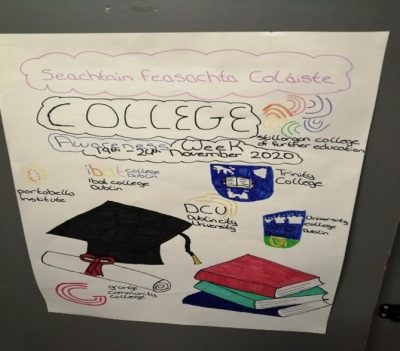 Seachtain Feasachta Coláiste
COLLEGE
Awareness Week
19th - 24th November 2020
Stillorgan college
of further education
portobello
institute
ibat college
Dublin
ibat college
Dublin
Trinity
College
DCU
Dublin city
University
University
College
Dublin
grange
community
college